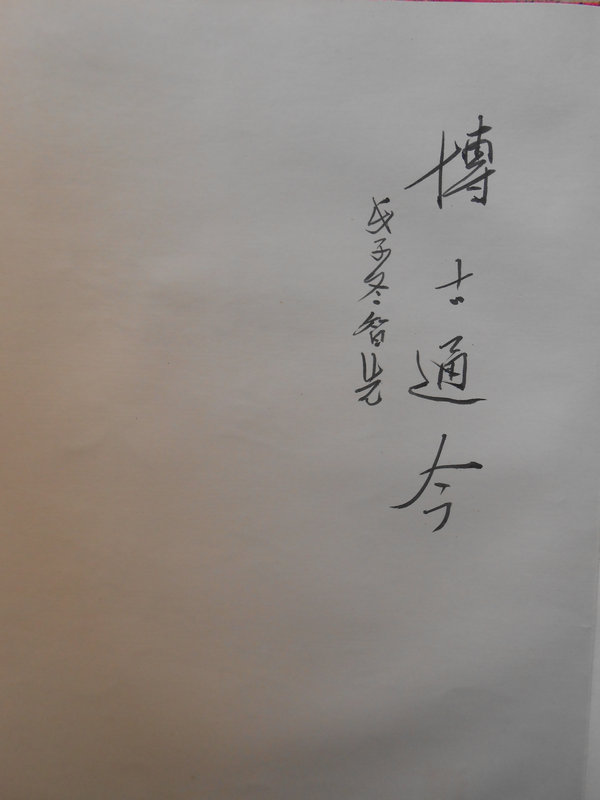 博古通今
戊子冬智先